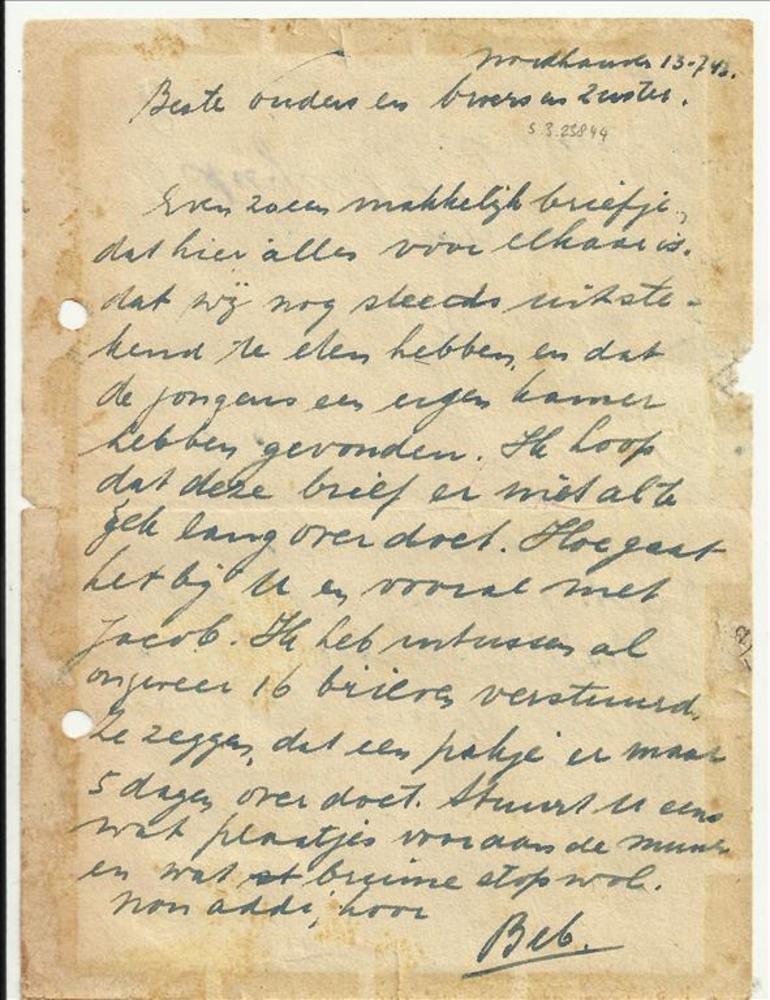 Nordhausen 13-7-43.
Beste ouders en broers en zuster.
S 3.25844
Even zo een makkelijk briefje,
dat hier alles voor elkaar is.
dat wij nog steeds uitste-
kend te eten hebben, en dat
de jongens een eigen kamer
hebben gevonden. Ik hoop
dat deze brief er niet al te
gek lang over doet. Hoe gaat
het bij U en vooral met
Jacob. Ik heb intussen al
ongeveer 16 brieven verstuurd.
Ze zeggen, dat een pakje er maar
5 dagen over doet. Stuurt U eens
wat plaatjes voor aan de muur
en wat bruine stopwol.
Nou addi, hoor
Beb.